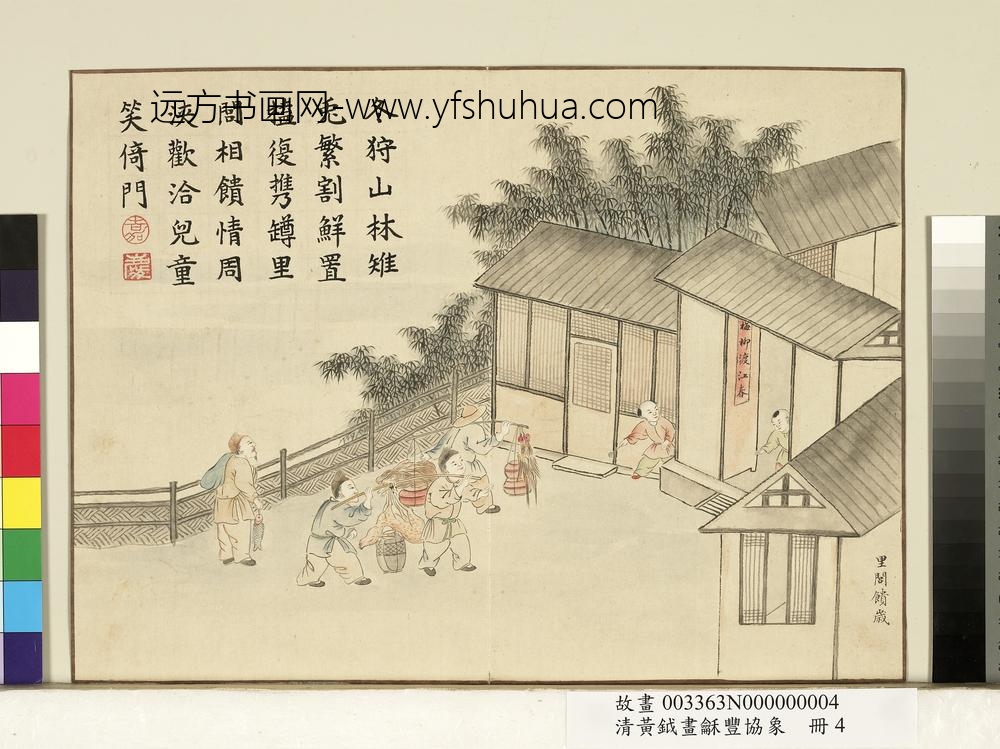 远方书画网-www.yfshuhua.com
冬狩山林雉
兔繁割鮮置
榼復攜罇里
閭相饋情周
浹歡洽兒童
笑倚門
嘉
慶
梅柳渡江春
里閭饋歲
故畫 003363N000000004
清黃鉞畫龢豐協象 冊 4